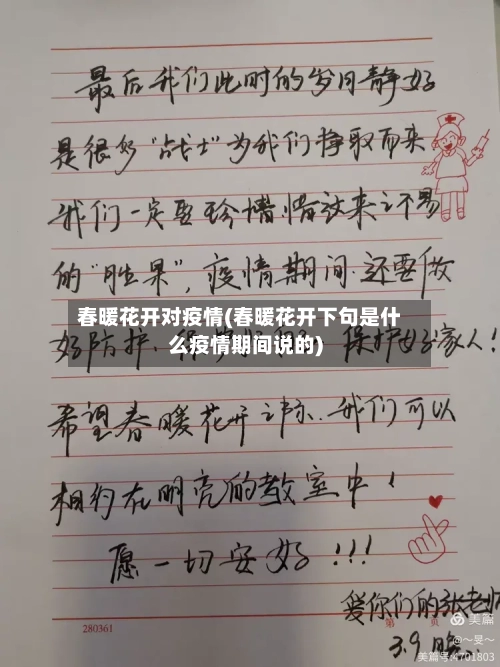 最后我们此时的岁月静好
是很多“战士”为我们挣取而来
我们一定要珍惜这来之不易
的“胜果”，疫情期间还要做
春暖花开对疫情(春暖花开下句是什
么疫情期间说的)
好防护 保护好家人！
希望春暖花开之际.我们可以
相约在明亮的教室中！
愿一切安好！！！
爱你们的张老师
280361
第 页
美篇
@～旻～
3.9晚.
美篇号:4701803